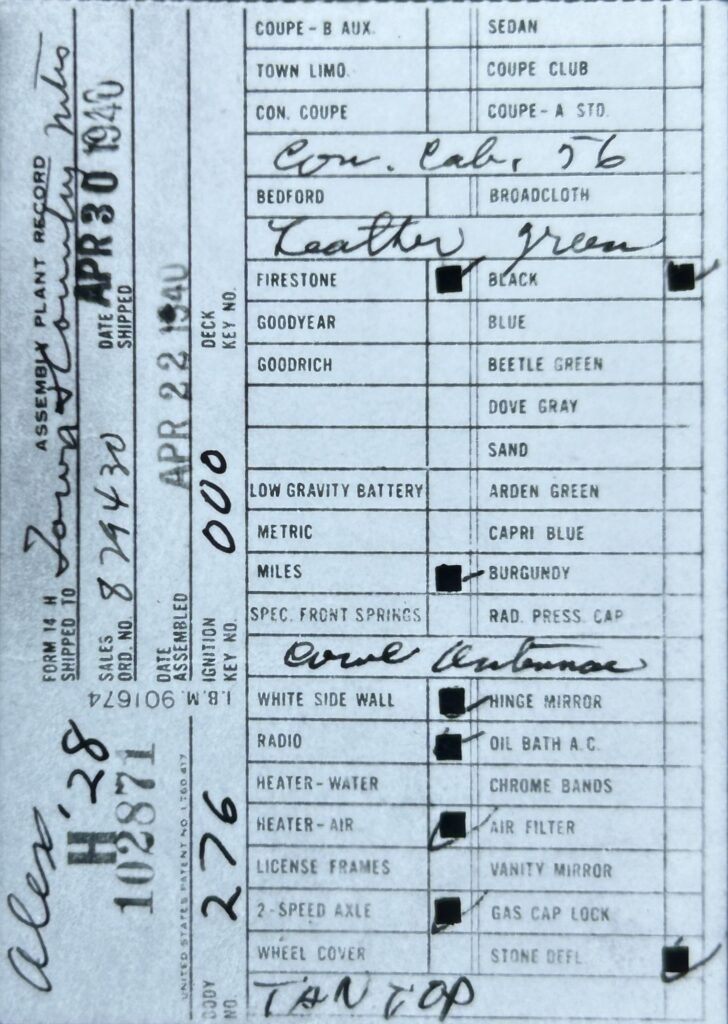 COUPE - B AUX. SEDAN
TOWN LIMO. COUPE CLUB
CON. COUPE COUPE - A STD.
Con. Cab. 56
BEDFORD BROADCLOTH
Leather green
FIRESTONE BLACK
GOODYEAR BLUE
GOODRICH BEETLE GREEN
DOVE GRAY
SAND
LOW GRAVITY BATTERY ARDEN GREEN
METRIC CAPRI BLUE
MILES BURGUNDY
SPEC. FRONT SPRINGS RAD. PRESS. CAP
Cowl Antennae
WHITE SIDE WALL HINGE MIRROR
RADIO OIL BATH A.C.
HEATER - WATER CHROME BANDS
HEATER - AIR AIR FILTER
LICENSE FRAMES VANITY MIRROR
2 - SPEED AXLE GAS CAP LOCK
WHEEL COVER STONE DEFL.
TAN TOP
ASSEMBLY PLANT RECORD
FORM 14 H
SHIPPED TO Town & Country
SALES ORD. NO. 829430
DATE SHIPPED APR 30 1940
DATE ASSEMBLED APR 22 1940
IGNITION KEY NO. 000
DECK KEY NO.
I.B.M. 901674
Alex '28
H
102871
UNITED STATES PATENT NO. 1,780,417
BODY NO. 276